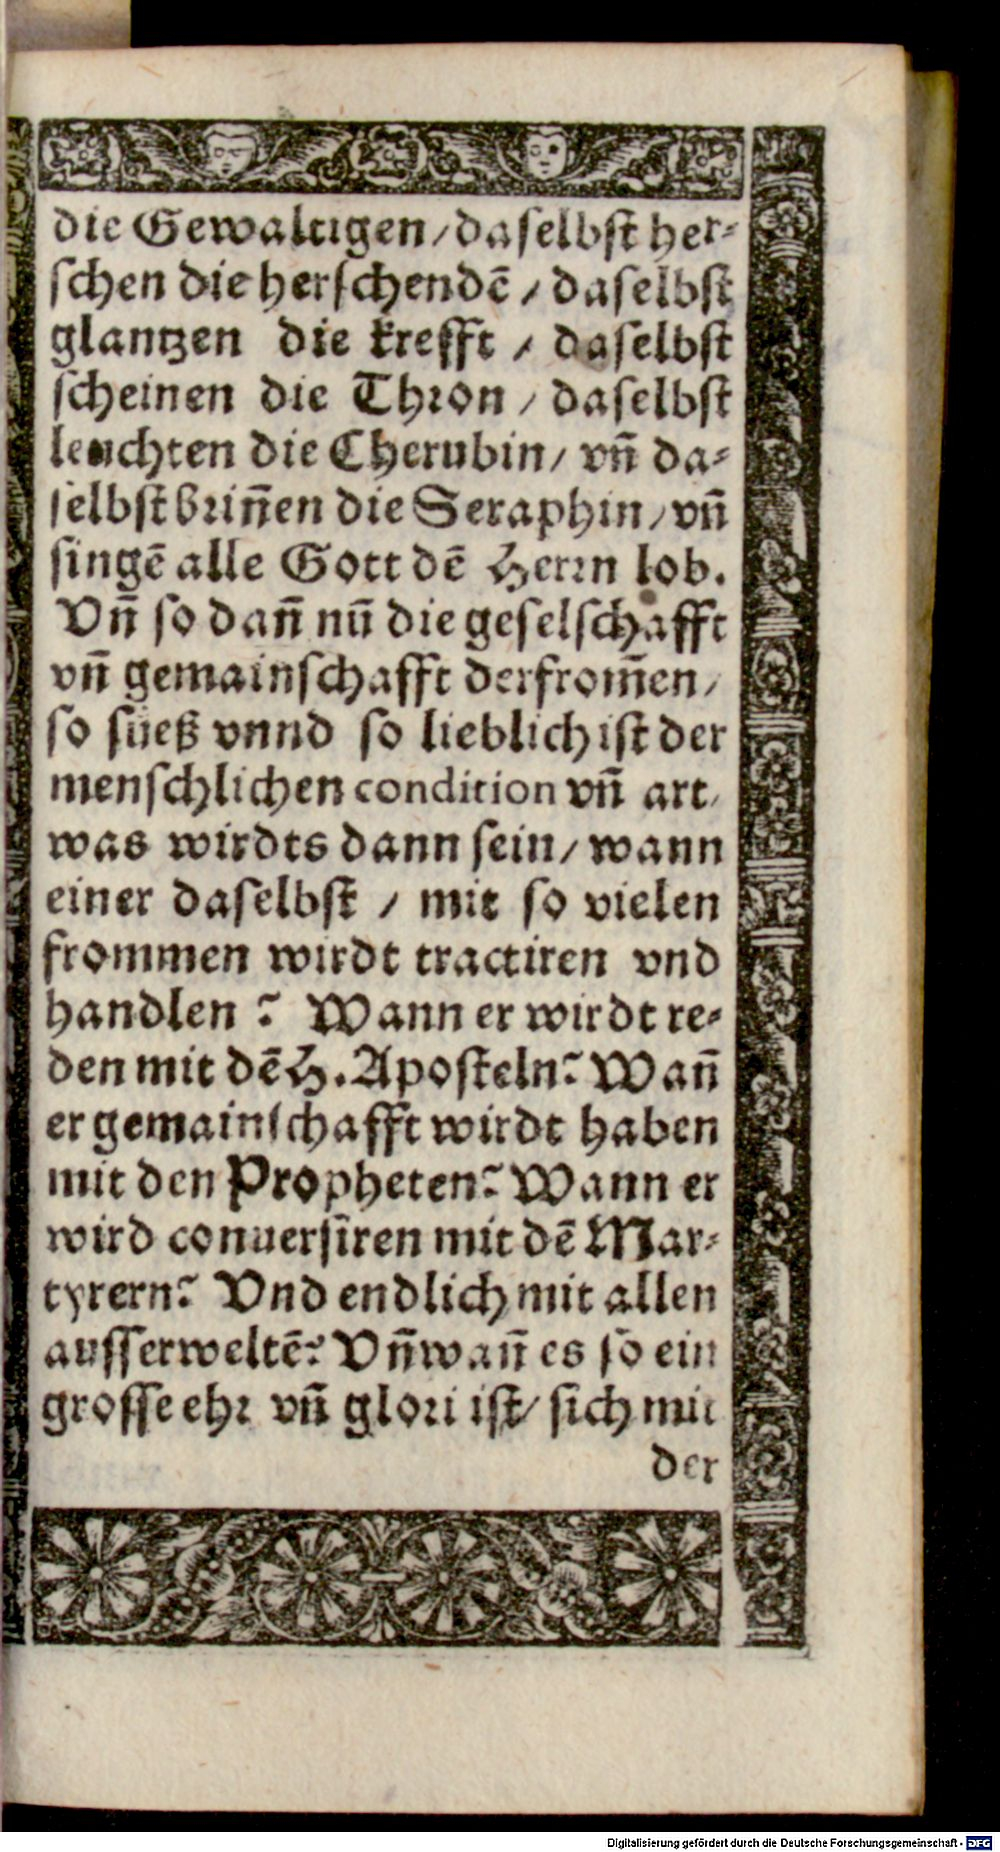 die Gewaltigen/daselbst her⸗
schen die herschendē/daselbst
glantzen die krefft/daselbst
scheinen die Thron/daselbst
leuchten die Cherubin/vn̄ da⸗
selbst brin̄en die Seraphin/vn̄
singē alle Gott dē Herrn lob.
Vn̄ so dan̄ nū die geselschafft
vn̄ gemainschafft der from̄en/
so süeß vnnd so lieblich ist der
menschlichen condition vn̄ art/
was wirdts dann sein/wann
einer daselbst/mit so vielen
frommen wirdt tractiren vnd
handlen? Wann er wirdt re⸗
den mit dē H. Aposteln? Wan̄
er gemainschafft wirdt haben
mit den Propheten? Wann er
wird conuersiren mit dē Mar⸗
tyrern? Vnd endlich mit allen
ausserweltē? Vn̄ wan̄ es so ein
grosse ehr vn̄ glori ist/sich mit
der
Digitalisierung gefördert durch die Deutsche Forschungsgemeinschaft - DFG